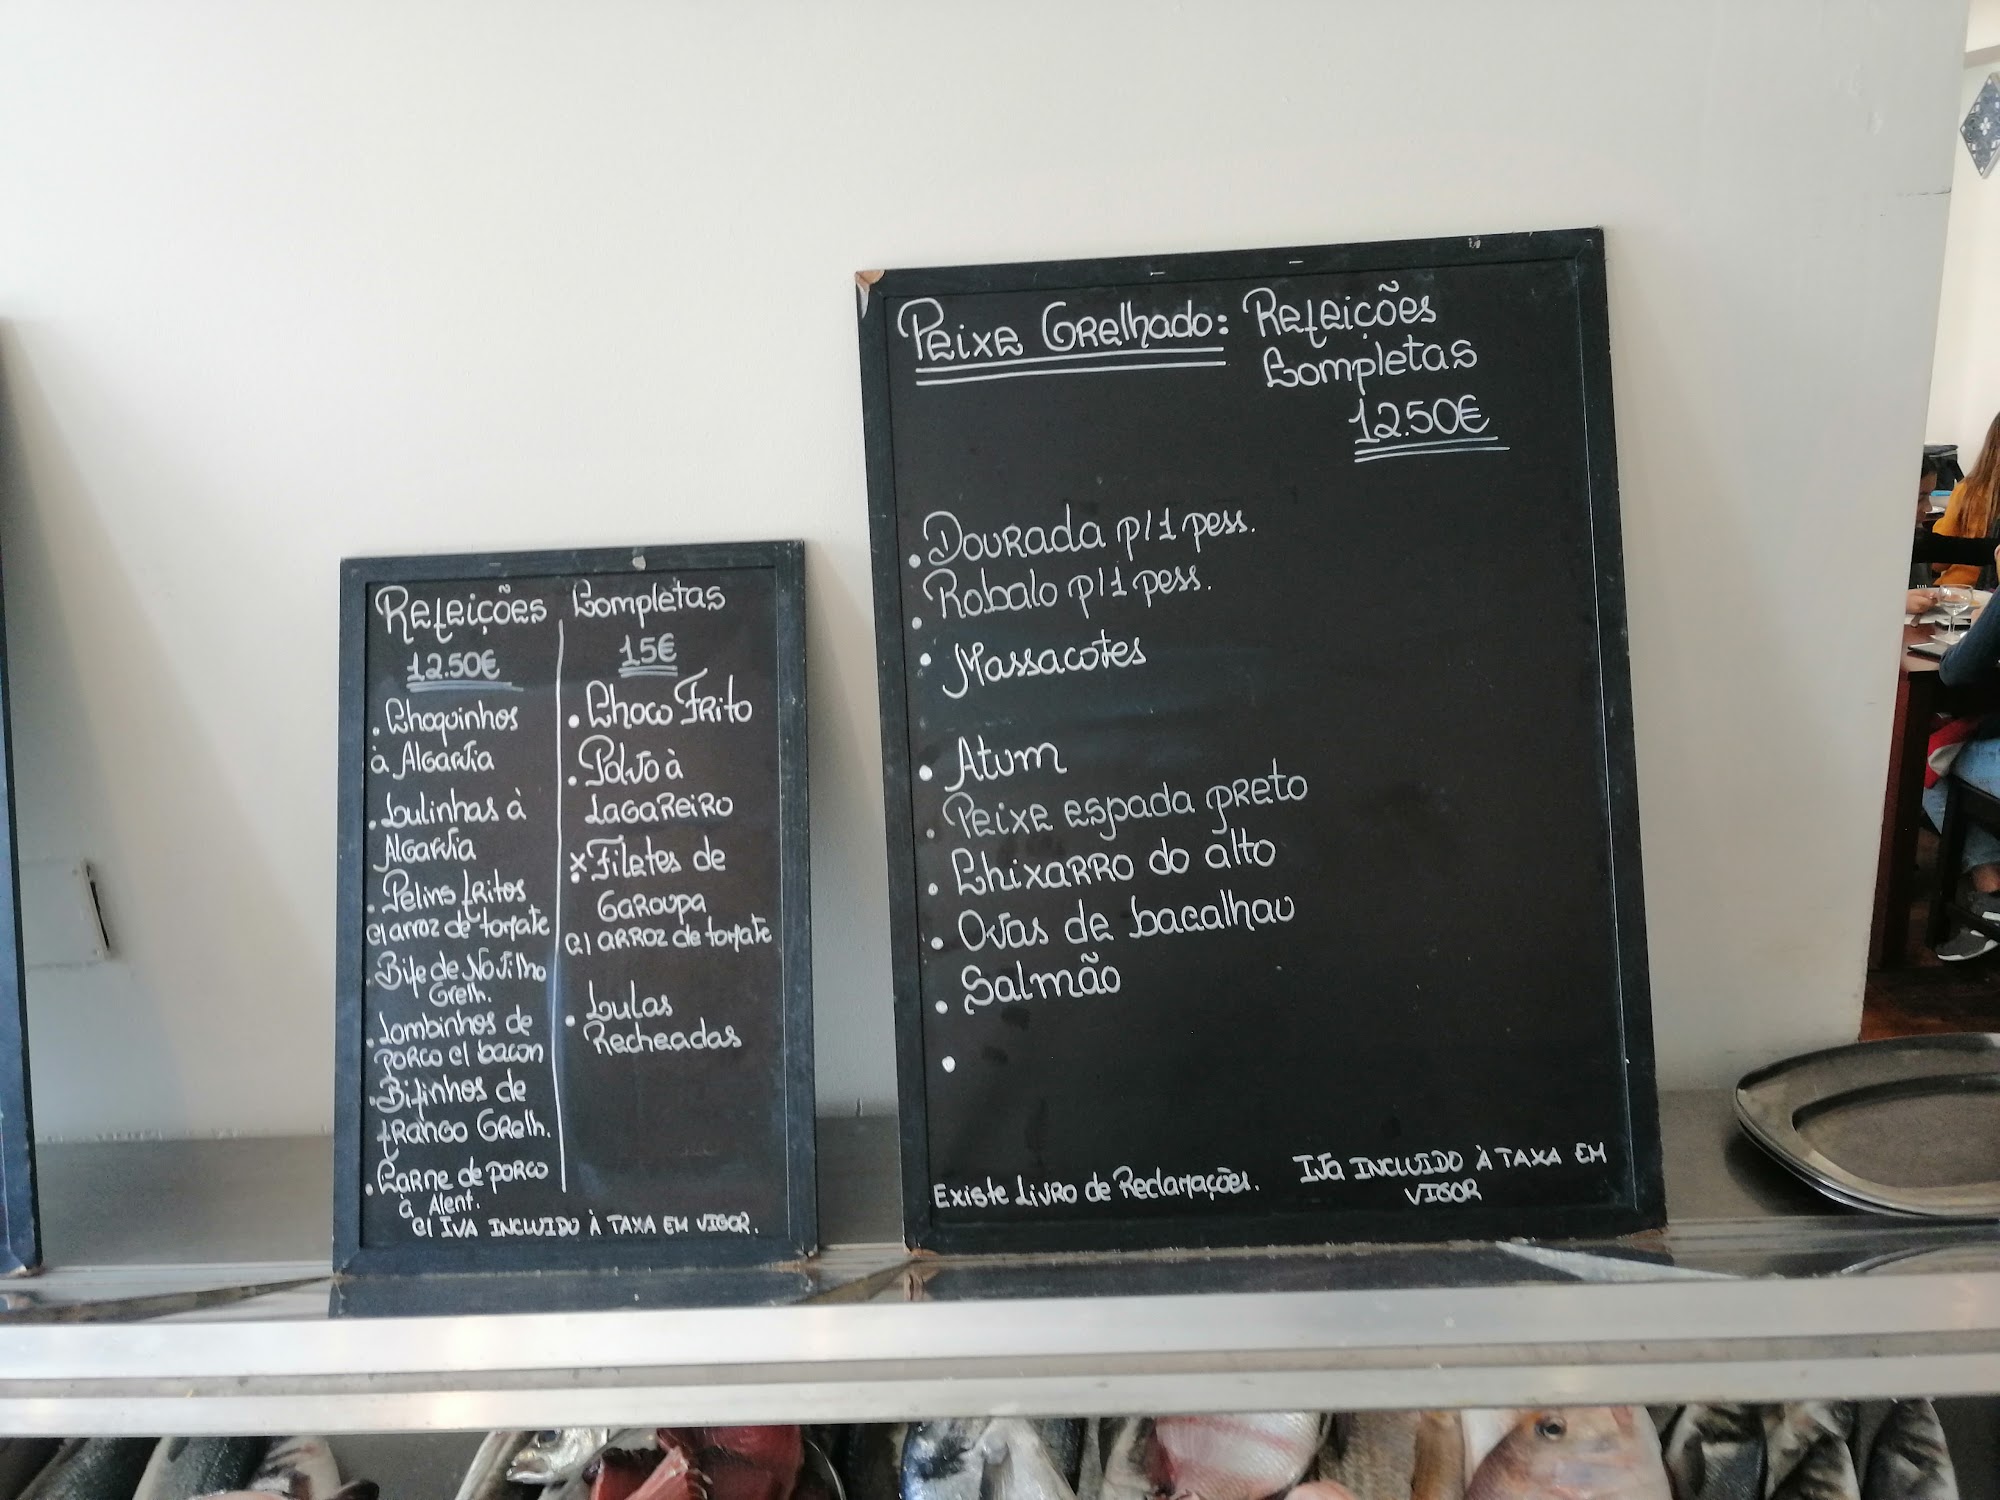 Refeições Completas
12.50€
. Choquinhos
à Algarvia
. Lulinhas à
Algarvia
. Pelins fritos
c/ arroz de tomate
. Bife de Novilho
Grelh.
. Lombinhos de
porco c/ bacon
. Bifinhos de
frango Grelh.
. Carne de porco
à Alent.
15€
. Choco Frito
. Polvo à
Lagareiro
x Filetes de
Garoupa
c/ arroz de tomate
. Lulas
Recheadas
c/ IVA INCLUIDO À TAXA EM VIGOR.
Peixe Grelhado: Refeições
Completas
12.50€
. Dourada p/1 pess.
. Robalo p/1 pess.
. Massacotes
. Atum
. Peixe espada preto
. Chixarro do alto
. Ovas de bacalhau
. Salmão
.
Existe Livro de Reclamações.
IVA INCLUIDO À TAXA EM
VIGOR